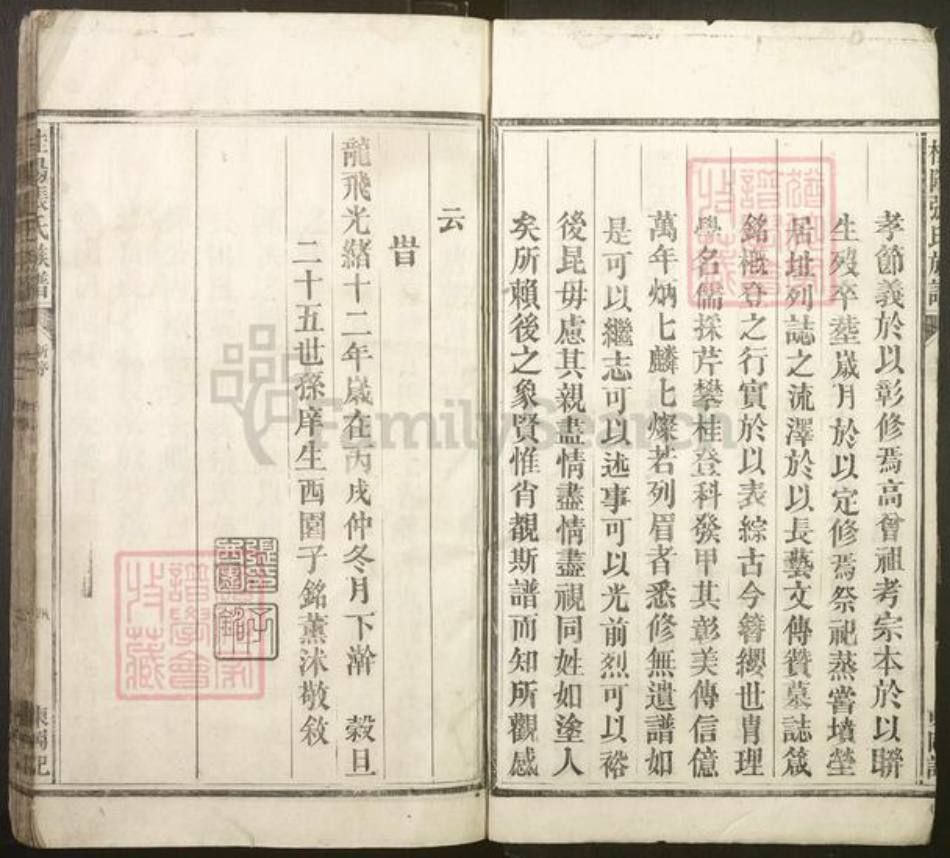 孝節義於以彰修焉高曾祖考宗本於以聯
生歿卒塟嵗月於以定修焉祭祀蒸嘗墳塋
居址列誌之流澤於以長藝文傳贊墓誌箴
銘概登之行實於以表綜古今簪纓世胄理
學名儒採芹攀桂登科發甲其彰美傳信億
萬年炳匕麟匕燦若列眉者悉修無遺譜如
是可以繼志可以述事可以光前烈可以裕
後昆毋慮其親盡情盡情盡視同姓如塗人
矣所賴後之象賢惟肖覩斯譜而知所觀感
云
旹
龍飛光緒十二年嵗在丙戌仲冬月下澣 穀旦
二十五世孫庠生西園子銘薰沐敬敘
桂陽張氏族譜
新序
譜學會
收藏
FamilySearch